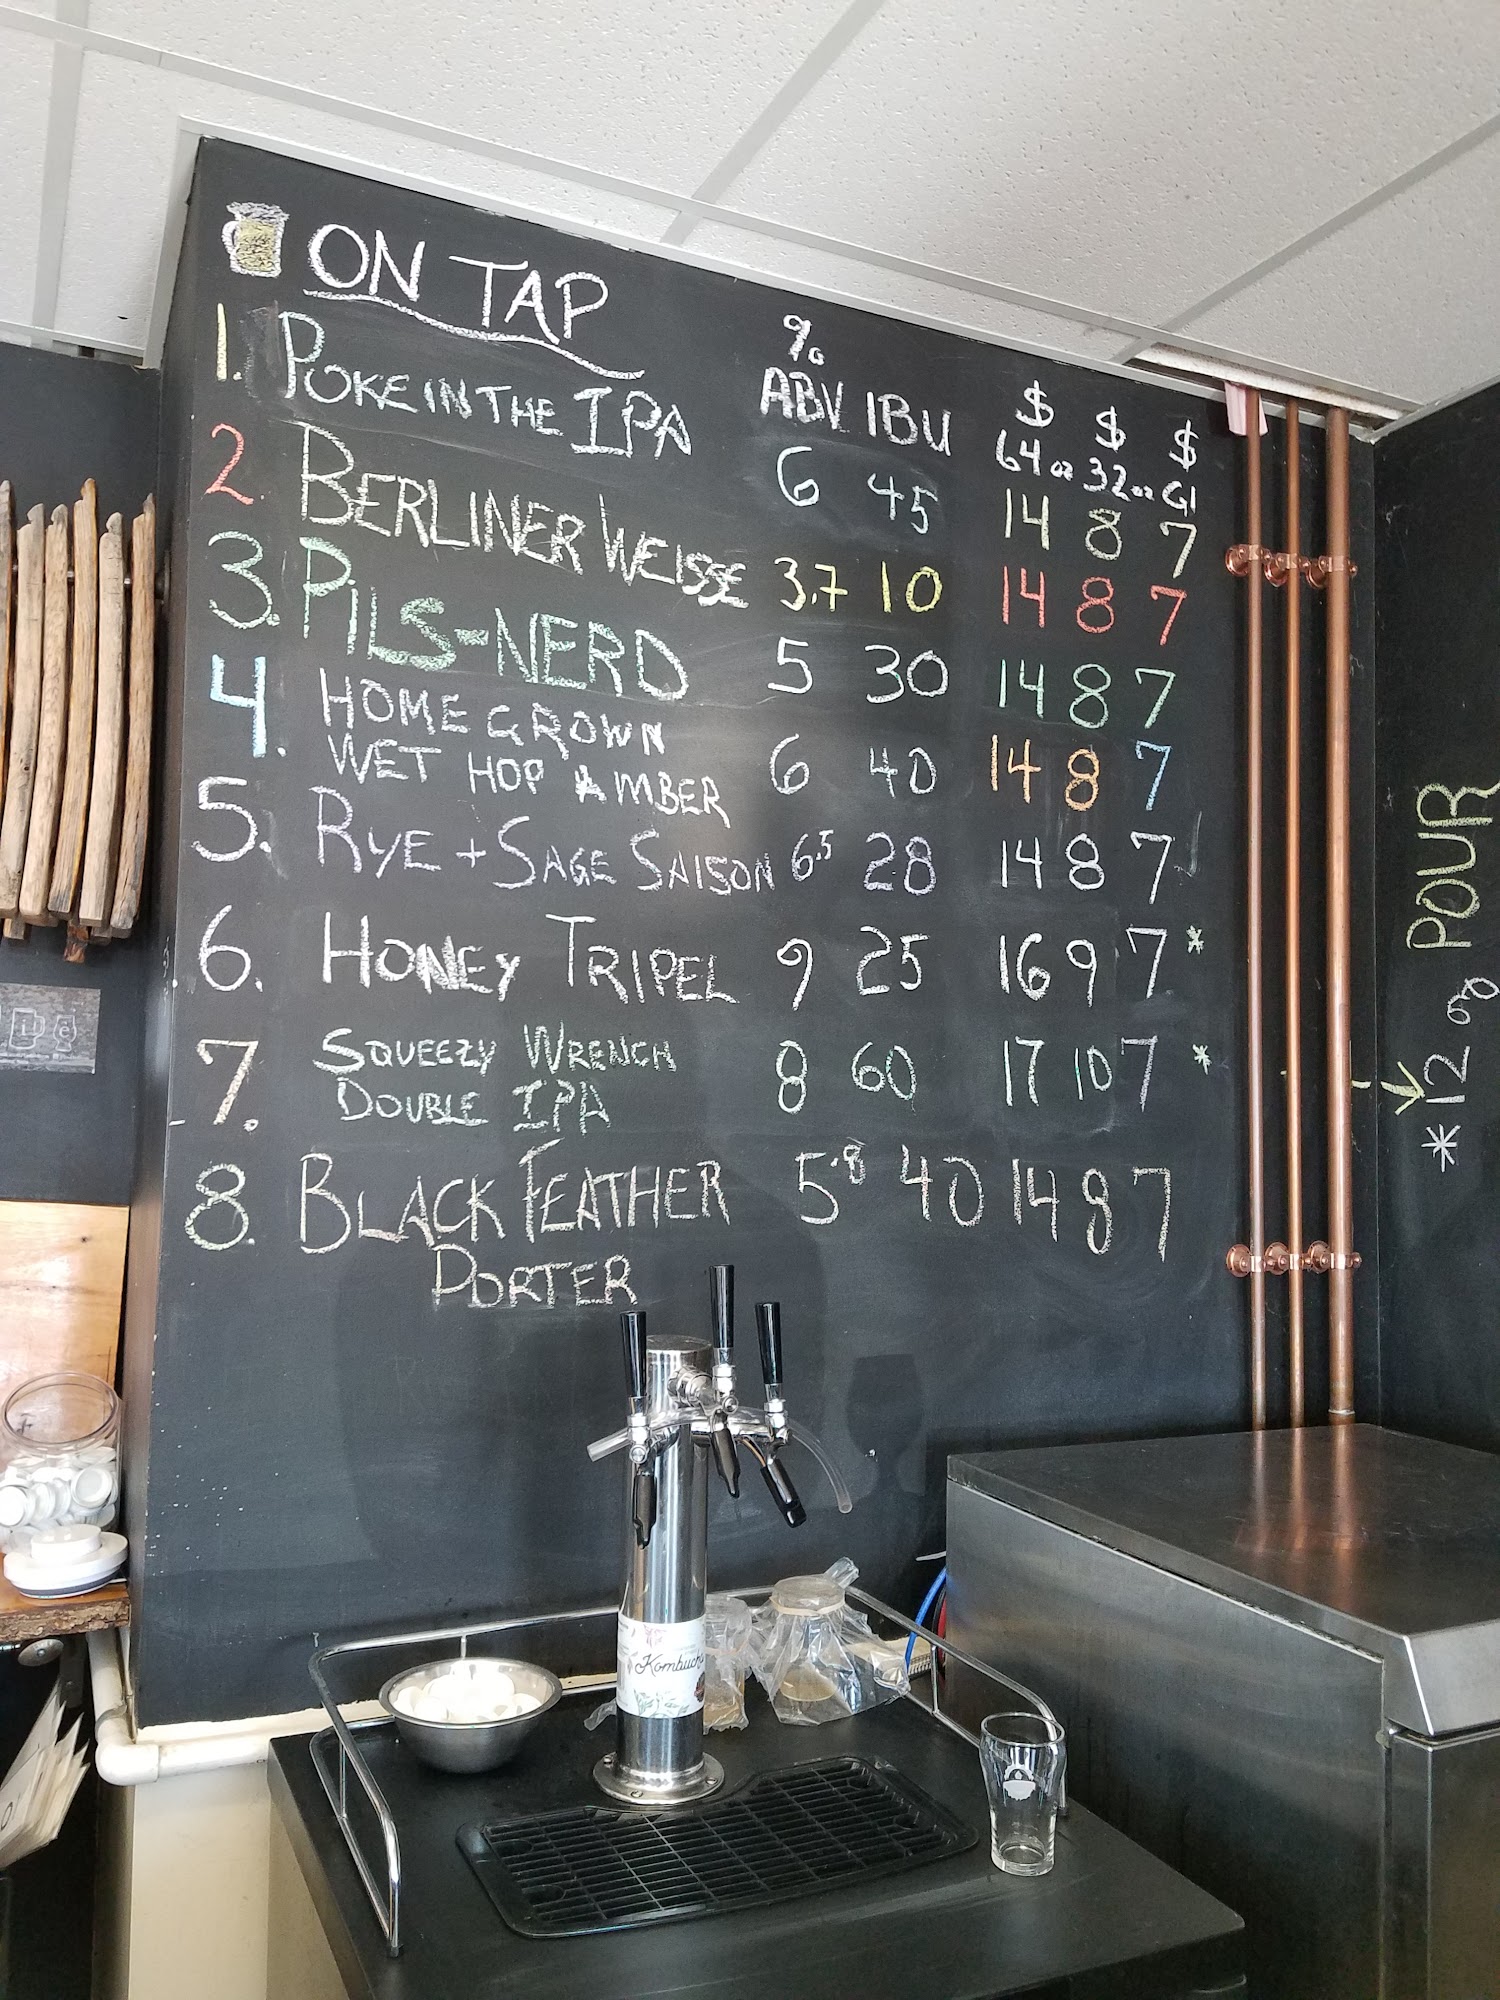 ON TAP
% ABV IBU $ 64 oz $ 32 oz $ Gl
1. POKE IN THE IPA 6 45 14 8 7
2. BERLINER WEISSE 3.7 10 14 8 7
3. PILS-NERD 5 30 14 8 7
4. HOME GROWN
WET HOP AMBER 6 40 14 8 7
5. RYE + SAGE SAISON 6.5 28 14 8 7
6. HONEY TRIPEL 9 25 16 9 7 *
7. SQUEEZY WRENCH
DOUBLE IPA 8 60 17 10 7 *
8. BLACK FEATHER
PORTER 5.8 40 14 8 7
* 12 oz POUR
Kombucha